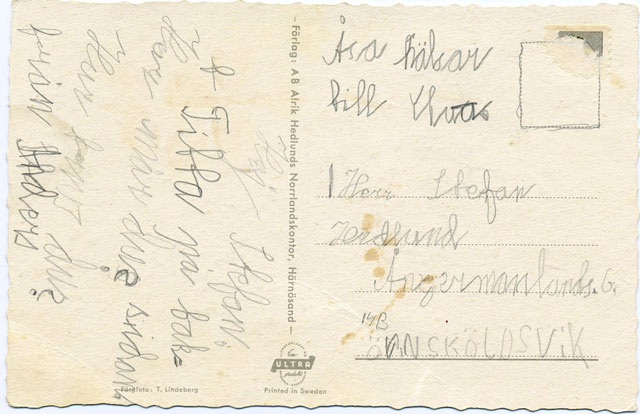 Hej Stefan!
Titta på bak-
sidan
Hur mår du?
Hur
från Anders
Förlag: AB Alrik Hedlunds Norrlandskontor, Härnösand
Färgfoto: T. Lindeberg
ULTRA
Printed in Sweden
Åsa hälsar
till
Herr Stefan
Hedlund
Ångermanlands. G.
14B
ÖRNSKÖLDSVIK